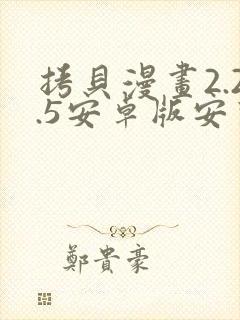 拷貝漫畫2.2
.5安卓版安
鄭貴豪